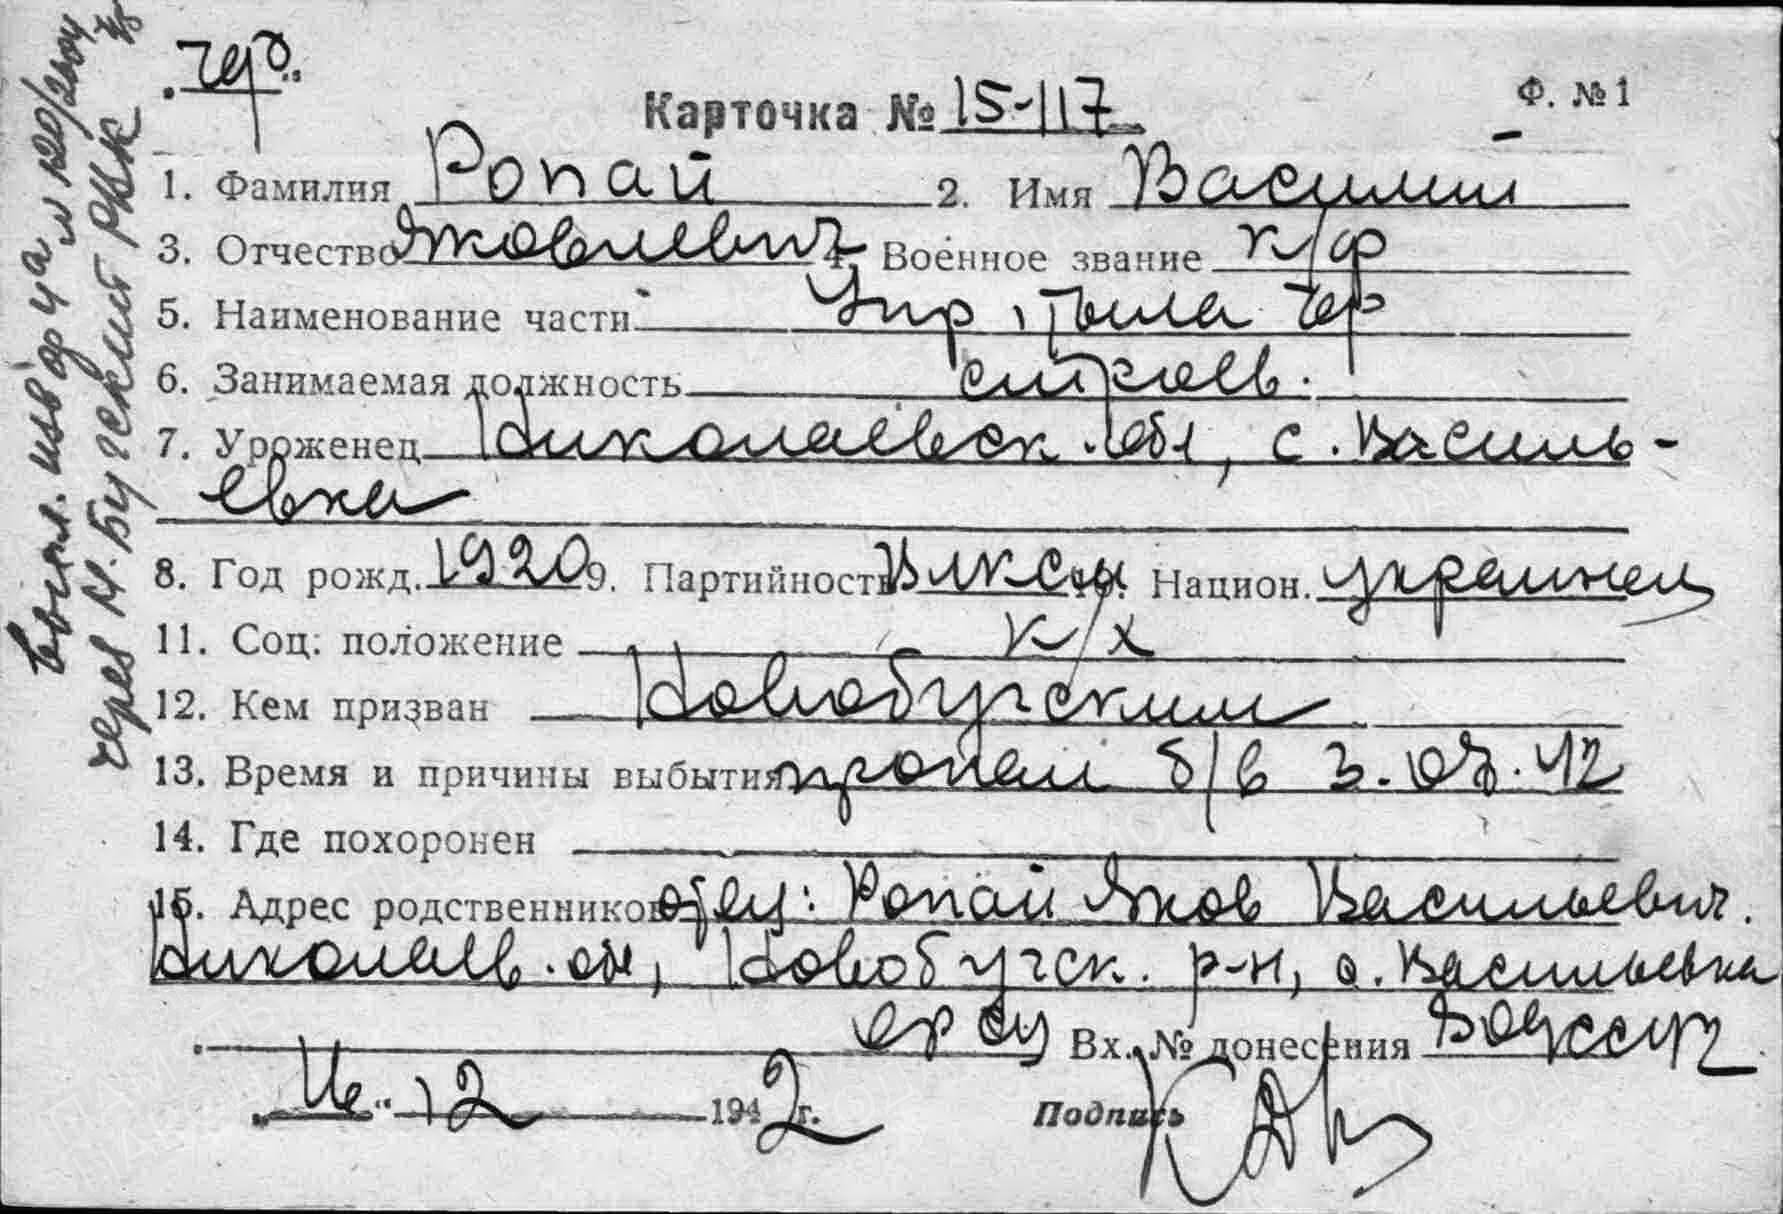 Карточка № 15-117
Ф. № 1
1. Фамилия Ропай 2. Имя Василий
3. Отчество Яковлевич 4. Военное звание к/ф
5. Наименование части Упр. тыла чф
6. Занимаемая должность строев.
7. Уроженец Николаевск. обл, с. Василь-
евка
8. Год рожд. 1920 9. Партийность ВЛКСМ Национ. украинец
11. Соц. положение к/х
12. Кем призван Новобугским
13. Время и причины выбытия пропал б/в 3.07.42
14. Где похоронен
15. Адрес родственников отец: Ропай Яков Васильевич.
Николаев. обл, Новобугск. р-н, с. Васильевка
Вх. № донесения
12 1942 г.
Подпись
через Н. Бугский РВК